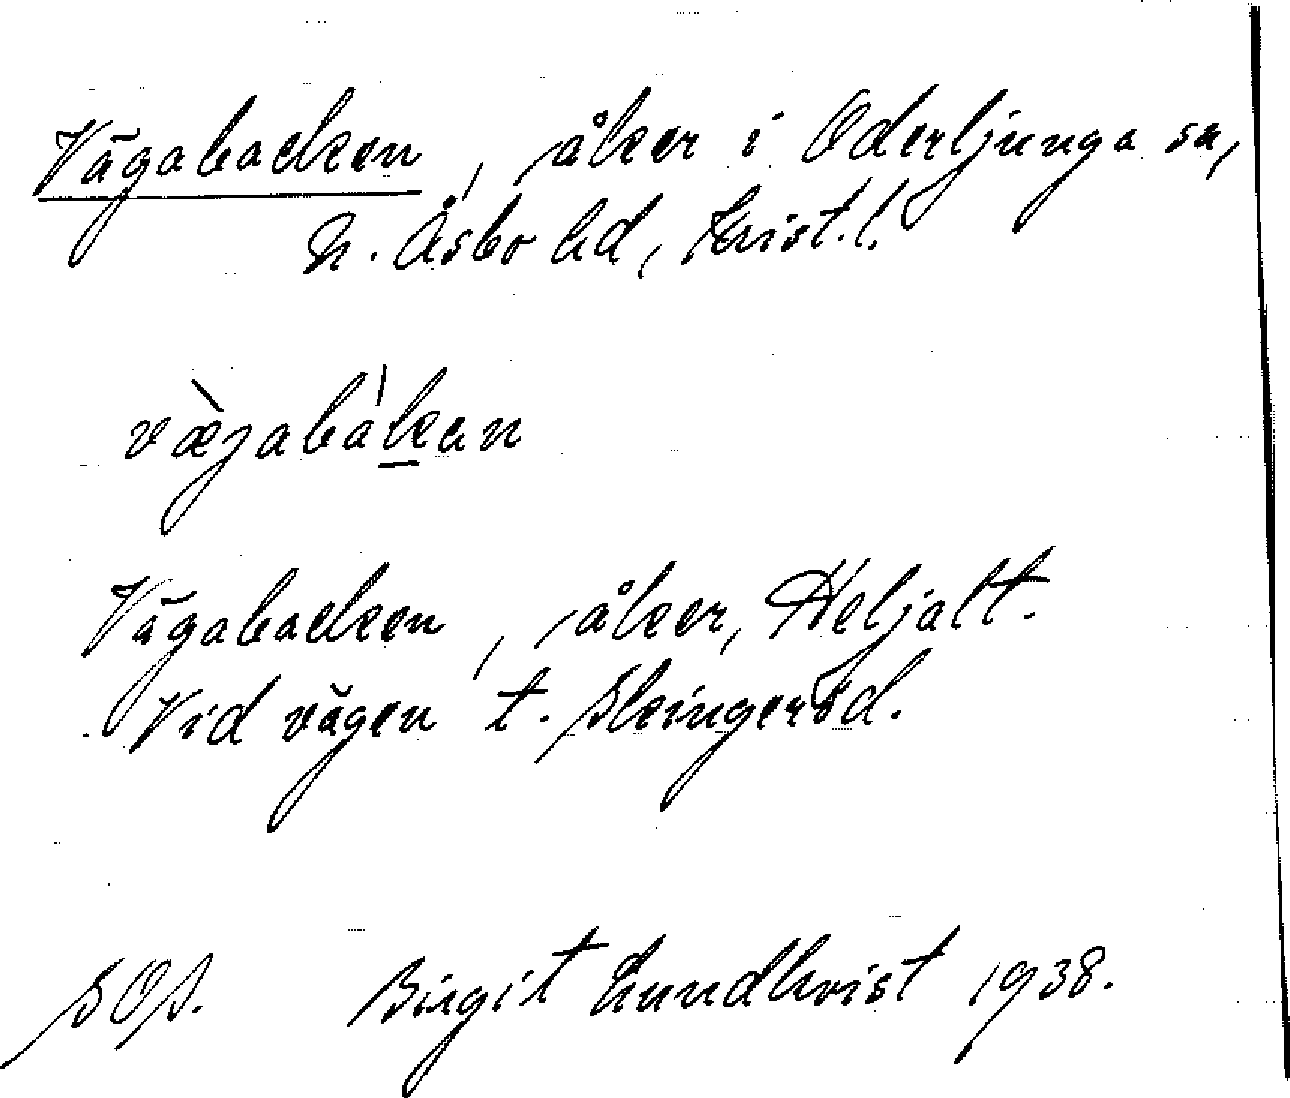 Vägabacken, åker i Oderljunga sn,
N. Åsbo hd, Krist. l.
væ̀jabákan
Vägabacken, åker, Heljalt.
Vid vägen t. Skingeröd.
SOS. Birgit Lundkvist 1938.